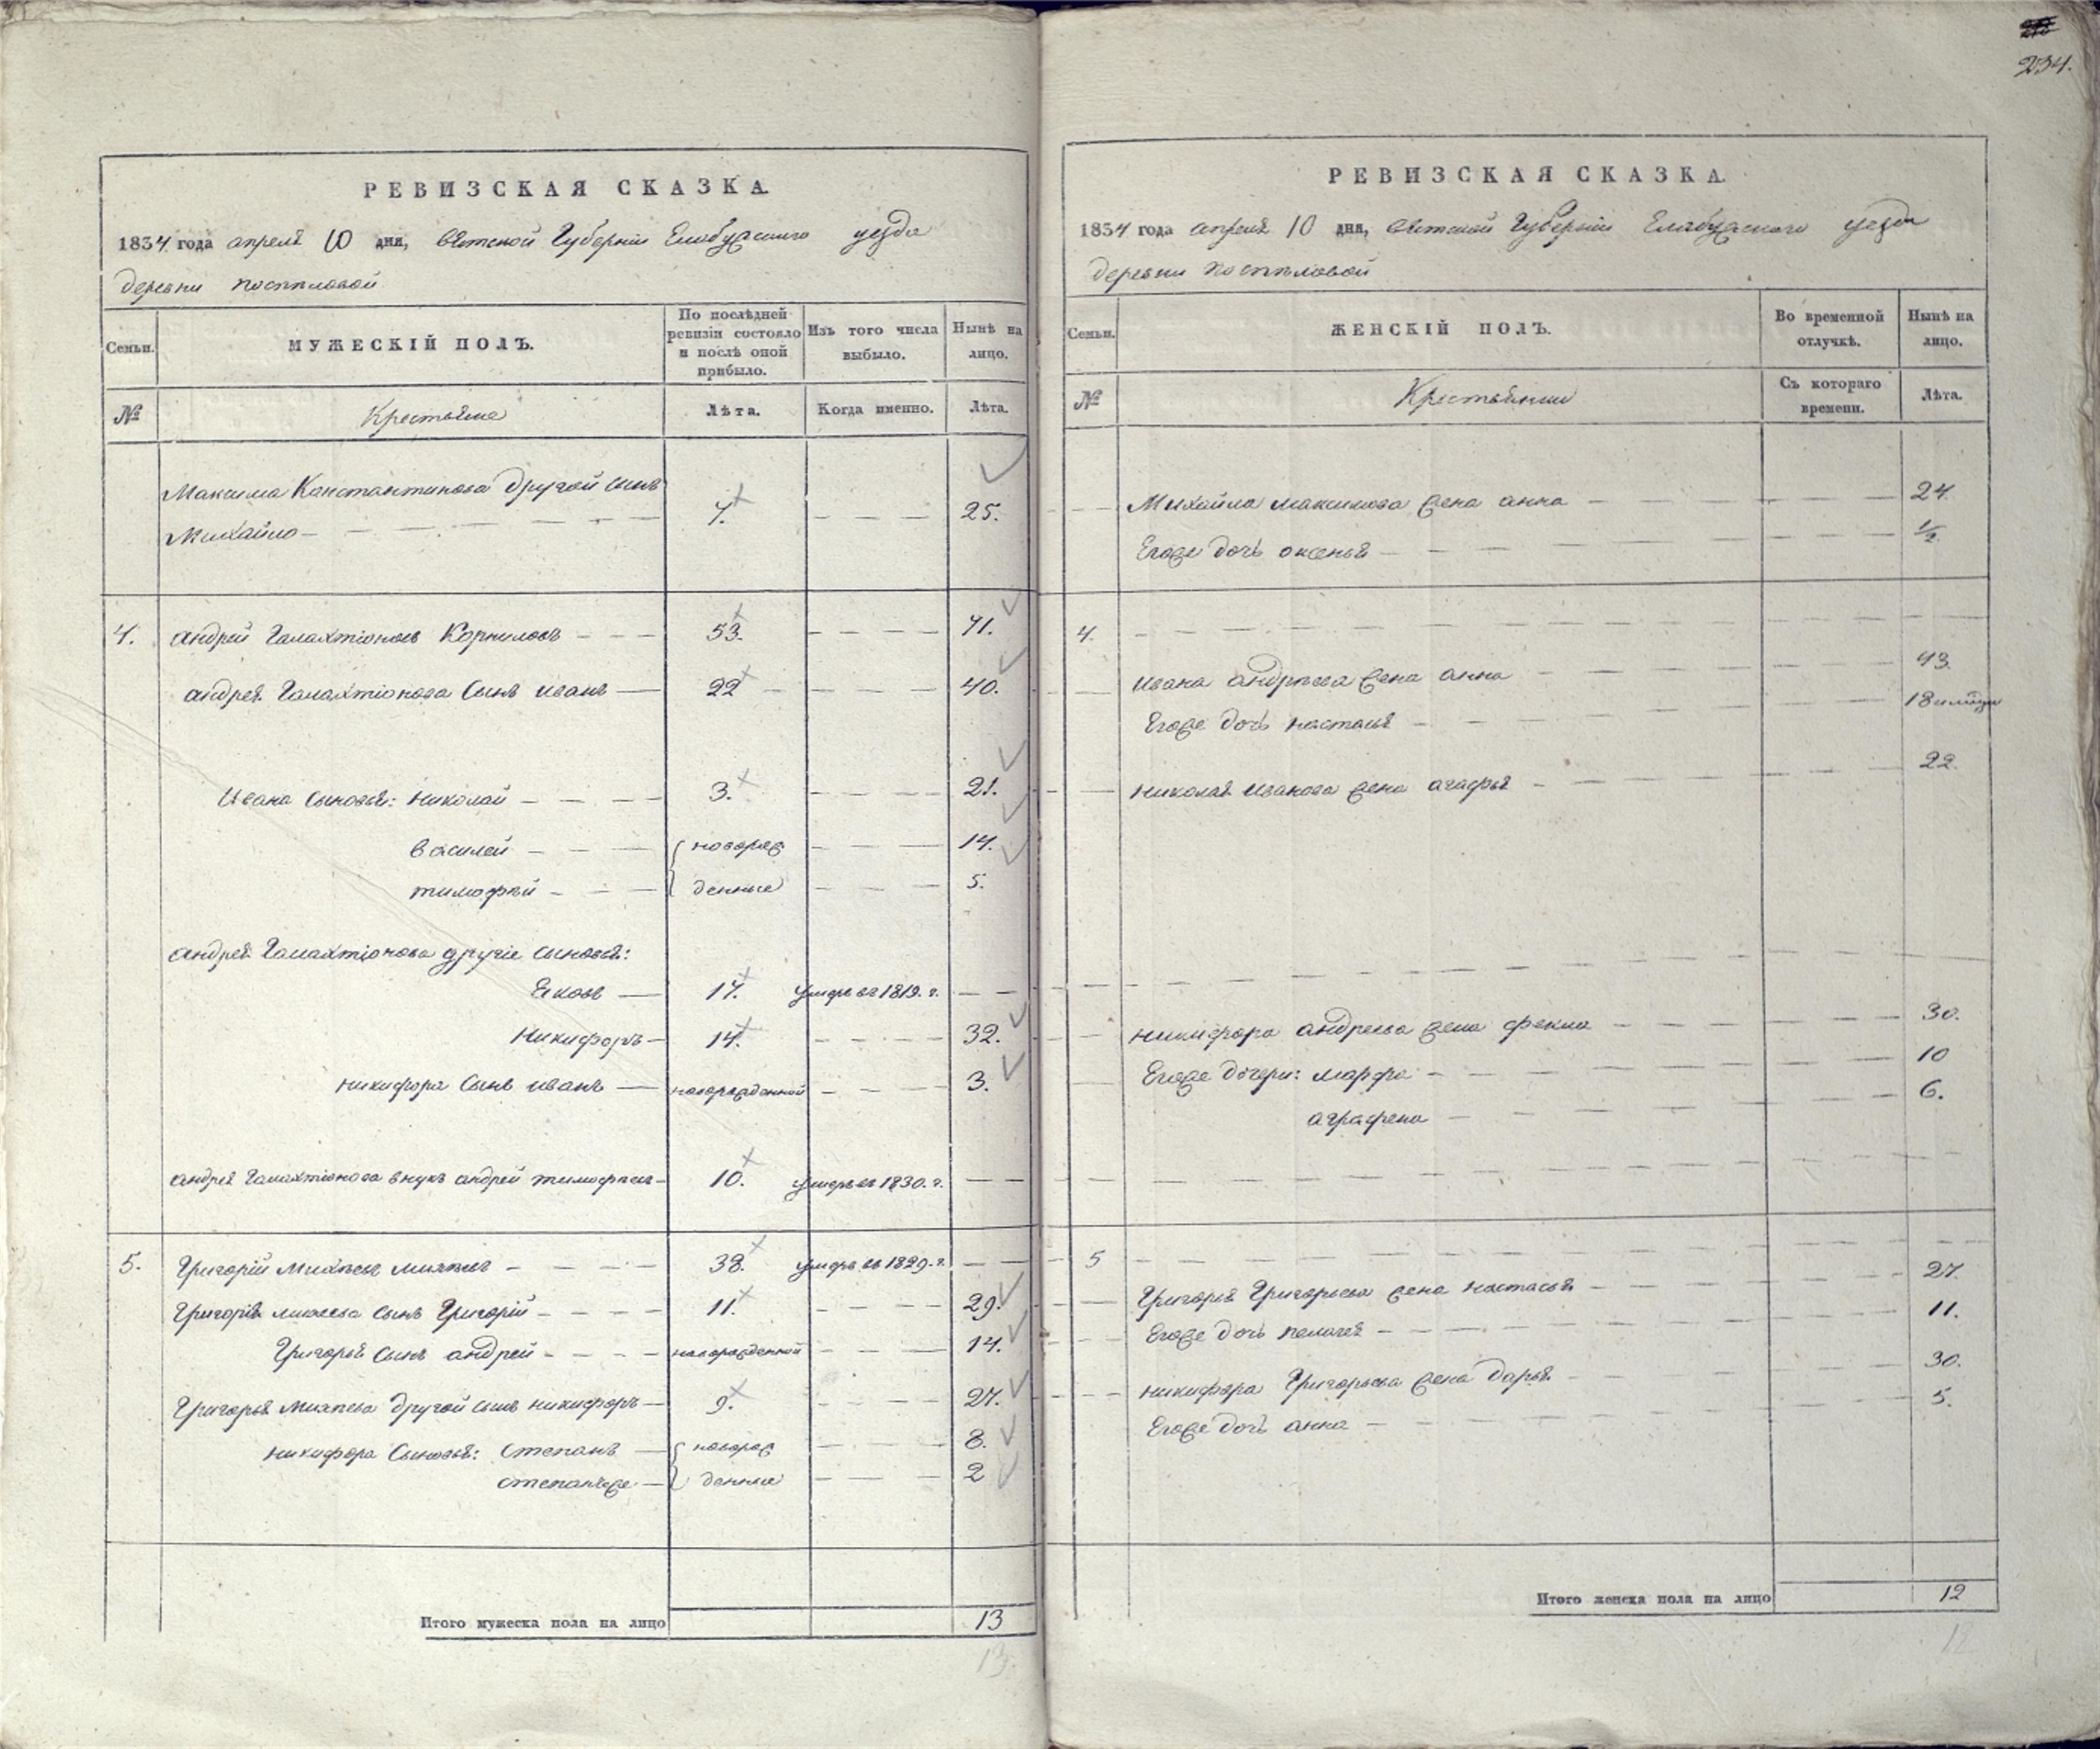 234.
РЕВИЗСКАЯ СКАЗКА.
1834 года апреля 10 дня, вятской Губернии Елабужского уезда
деревни поспѣловой
Семьи. МУЖЕСКІЙ ПОЛЪ. По послѣдней ревизіи состояло и послѣ оной прибыло. Изъ того числа выбыло. Нынѣ на лицо.
№ Крестьяне Лѣта. Когда именно. Лѣта.
Максима Константинова другой сынъ
Михайло 7. 25.
4. андрей Галахтіоновъ Корниловъ 53. 71.
андрея Галахтіонова Сынъ иванъ 22 40.
Ивана Сыновья: Николай 3. 21.
василей новорож 14.
тимофѣй денные 5.
андрея Галахтіонова другіе сыновья:
Яковъ 17. умеръ въ 1819. г.
Никифоръ 14. 32.
никифора Сынъ иванъ новорожденной 3.
андрея Галахтіонова внукъ андрей тимофѣевъ 10. умеръ въ 1830. г.
5. Григорій Михѣевъ михѣевъ 38. умеръ въ 1829. г.
Григорія михеева сынъ Григорій 11. 29.
Григорья Сынъ андрей новорожденной 14.
Григорья Михѣева другой сынъ никифоръ 9. 27.
никифора Сыновья: Степанъ новорож 8.
степанъже денные 2
Итого мужеска пола на лицо 13
13
РЕВИЗСКАЯ СКАЗКА.
1834 года апреля 10 дня, вятской Губерніи Елабужского уезда
деревни поспѣловой
Семьи. ЖЕНСКІЙ ПОЛЪ. Во временной отлучкѣ. Нынѣ на лицо.
№ Крестьянки Съ котораго времени. Лѣта.
Михайла максимова жена анна 24.
Егоже дочь оксенья 1/2
4.
Ивана андрѣева жена анна 43.
Егоже дочь настасья 18
николая иванова жена агафья 22.
никифора андреева жена фекла 30.
Егоже дочери: марфа 10
аграфена 6.
5
Григорья Григорьева жена настасья 27.
Егоже дочь пелагея 11.
никифора Григорьева жена дарья 30.
Егоже дочь анна 5.
Итого женска пола на лицо 12
12